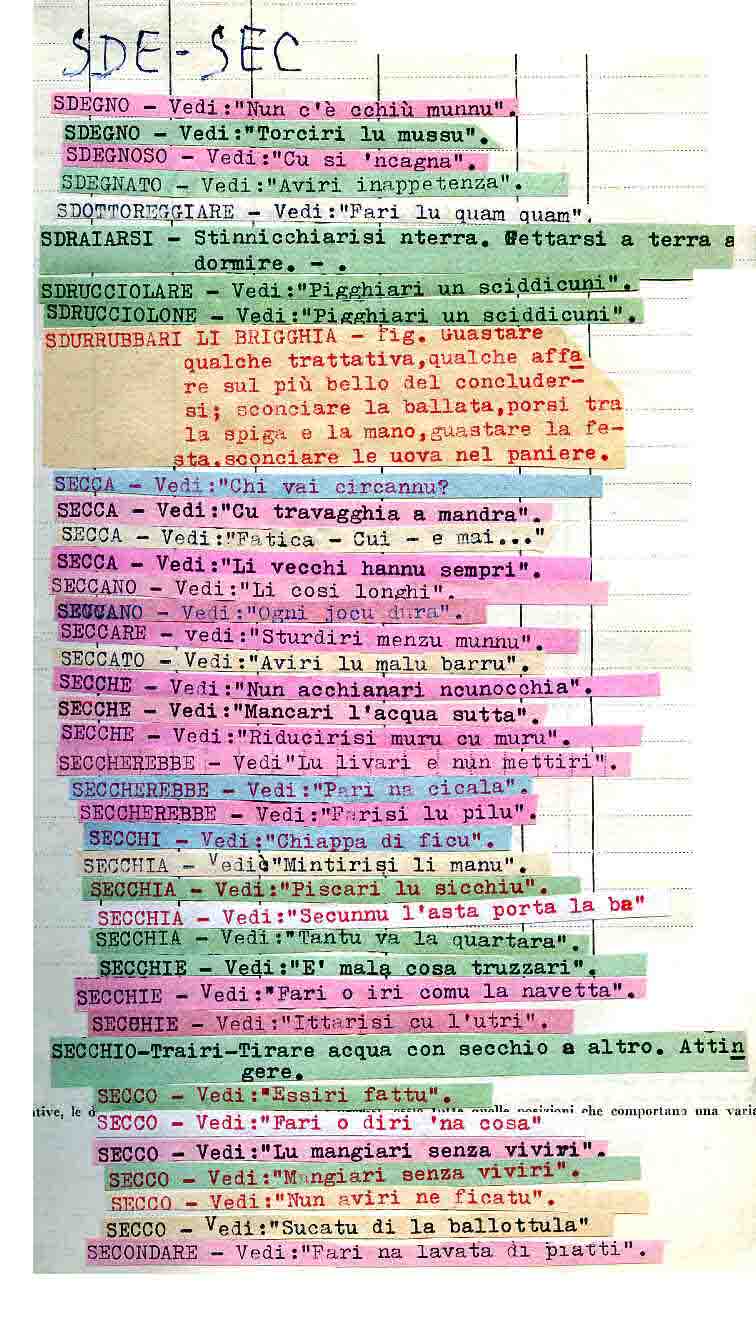 SDE-SEC
SDEGNO - Vedi:"Nun c'è cchiù munnu".
SDEGNO - Vedi:"Torciri lu mussu".
SDEGNOSO - Vedi:"Cu si 'ncagna".
SDEGNATO - Vedi:"Aviri inappetenza".
SDOTTOREGGIARE - Vedi:"Fari lu quam quam".
SDRAIARSI - Stinnicchiarisi nterra. Gettarsi a terra a
dormire. - .
SDRUCCIOLARE - Vedi:"Pigghiari un sciddicuni".
SDRUCCIOLONE - Vedi:"Pigghiari un sciddicuni".
SDURRUBBARI LI BRIGGHIA - Fig. Guastare
qualche trattativa,qualche affa
re sul più bello del concluder-
si; sconciare la ballata,porsi tra
la spiga e la mano,guastare la fe-
sta.sconciare le uova nel paniere.
SECCA - Vedi:"Chi vai circannu?
SECCA - Vedi:"Cu travagghia a mandra".
SECCA - Vedi:"Fatica - Cui - e mai..."
SECCA - Vedi:"Li vecchi hannu sempri".
SECCANO - Vedi:"Li cosi longhi".
SECCANO - Vedi:"Ogni jocu dura".
SECCARE - vedi:"Sturdiri menzu munnu".
SECCATO - Vedi:"Aviri lu malu barru".
SECCHE - Vedi:"Nun acchianari ncunocchia".
SECCHE - Vedi:"Mancari l'acqua sutta".
SECCHE - Vedi:"Riducirisi muru cu muru".
SECCHEREBBE - Vedi"Lu livari e nun mettiri".
SECCHEREBBE - Vedi:"Pari na cicala".
SECCHEREBBE - Vedi:"Farisi lu pilu".
SECCHI - Vedi:"Chiappa di ficu".
SECCHIA - Vedi:"Mintirisi li manu".
SECCHIA - Vedi:"Piscari lu sicchiu".
SECCHIA - Vedi:"Secunnu l'asta porta la ba"
SECCHIA - Vedi:"Tantu va la quartara".
SECCHIE - Vedi:"E' mala cosa truzzari".
SECCHIE - Vedi:"Fari o iri comu la navetta".
SECCHIE - Vedi:"Ittarisi cu l'utri".
SECCHIO-Trairi-Tirare acqua con secchio a altro. Attin
gere.
SECCO - Vedi:"Essiri fattu".
ative, le d che comportano una varia
SECCO - Vedi:"Fari o diri 'na cosa"
SECCO - Vedi:"Lu mangiari senza viviri".
SECCO - Vedi:"Mangiari senza viviri".
SECCO - Vedi:"Nun aviri ne ficatu".
SECCO - Vedi:"Sucatu di la ballottula"
SECONDARE - Vedi:"Fari na lavata di piatti".